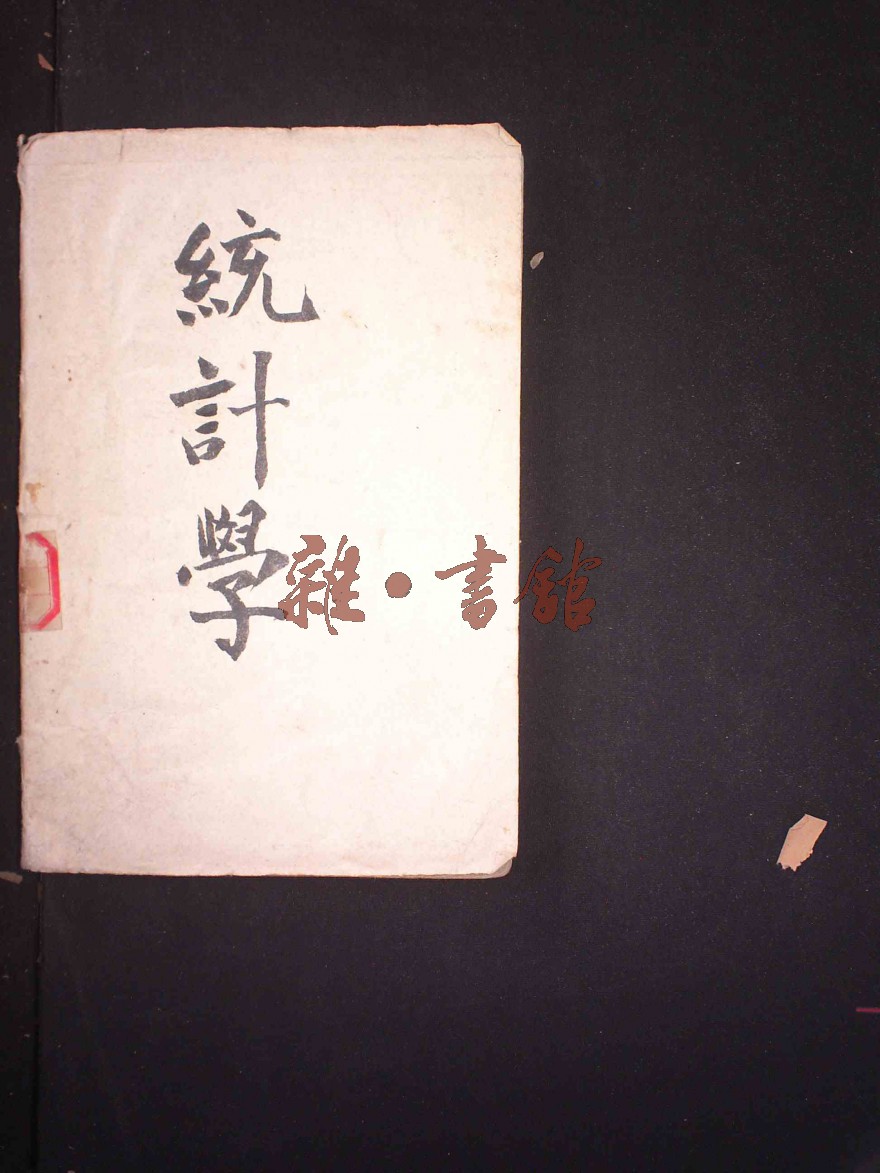 統計學
雜·書館